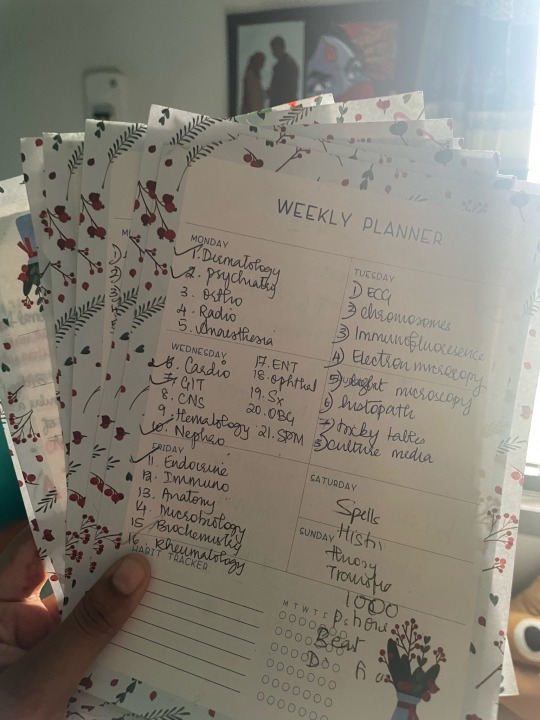 WEEKLY PLANNER
MONDAY
1. Dermatology
2. psychiatry
3. Ortho
4. Radio
5. Anaesthesia
TUESDAY
1) ECG
2) chromosomes
3) Immunofluoresence
4) Electron microscopy
5) light microscopy
6) histopath
7) tricky tables
8) culture media
WEDNESDAY
6. Cardio
7. GIT
8. CNS
9. Hematology
10. Nephro
17. ENT
18. ophthal
19. Sx
20. OBG
21. SPM
FRIDAY
11. Endocrine
12. Immuno
13. Anatomy
14. Microbiology
15. Biochemistry
16. Rheumatology
SATURDAY
Spells
SUNDAY
HABIT TRACKER
M T W T S
1000